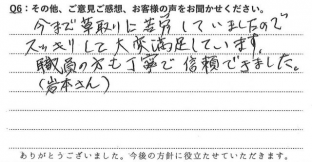 Q6：その他、ご意見ご感想、お客様の声をお聞かせください。
今まで草取りに苦労していましたので
スッキリして大変満足しています。
職員の方も丁寧で信頼できました。
(岩本さん)
ありがとうございました。今後の方針に役立たせていただきます。